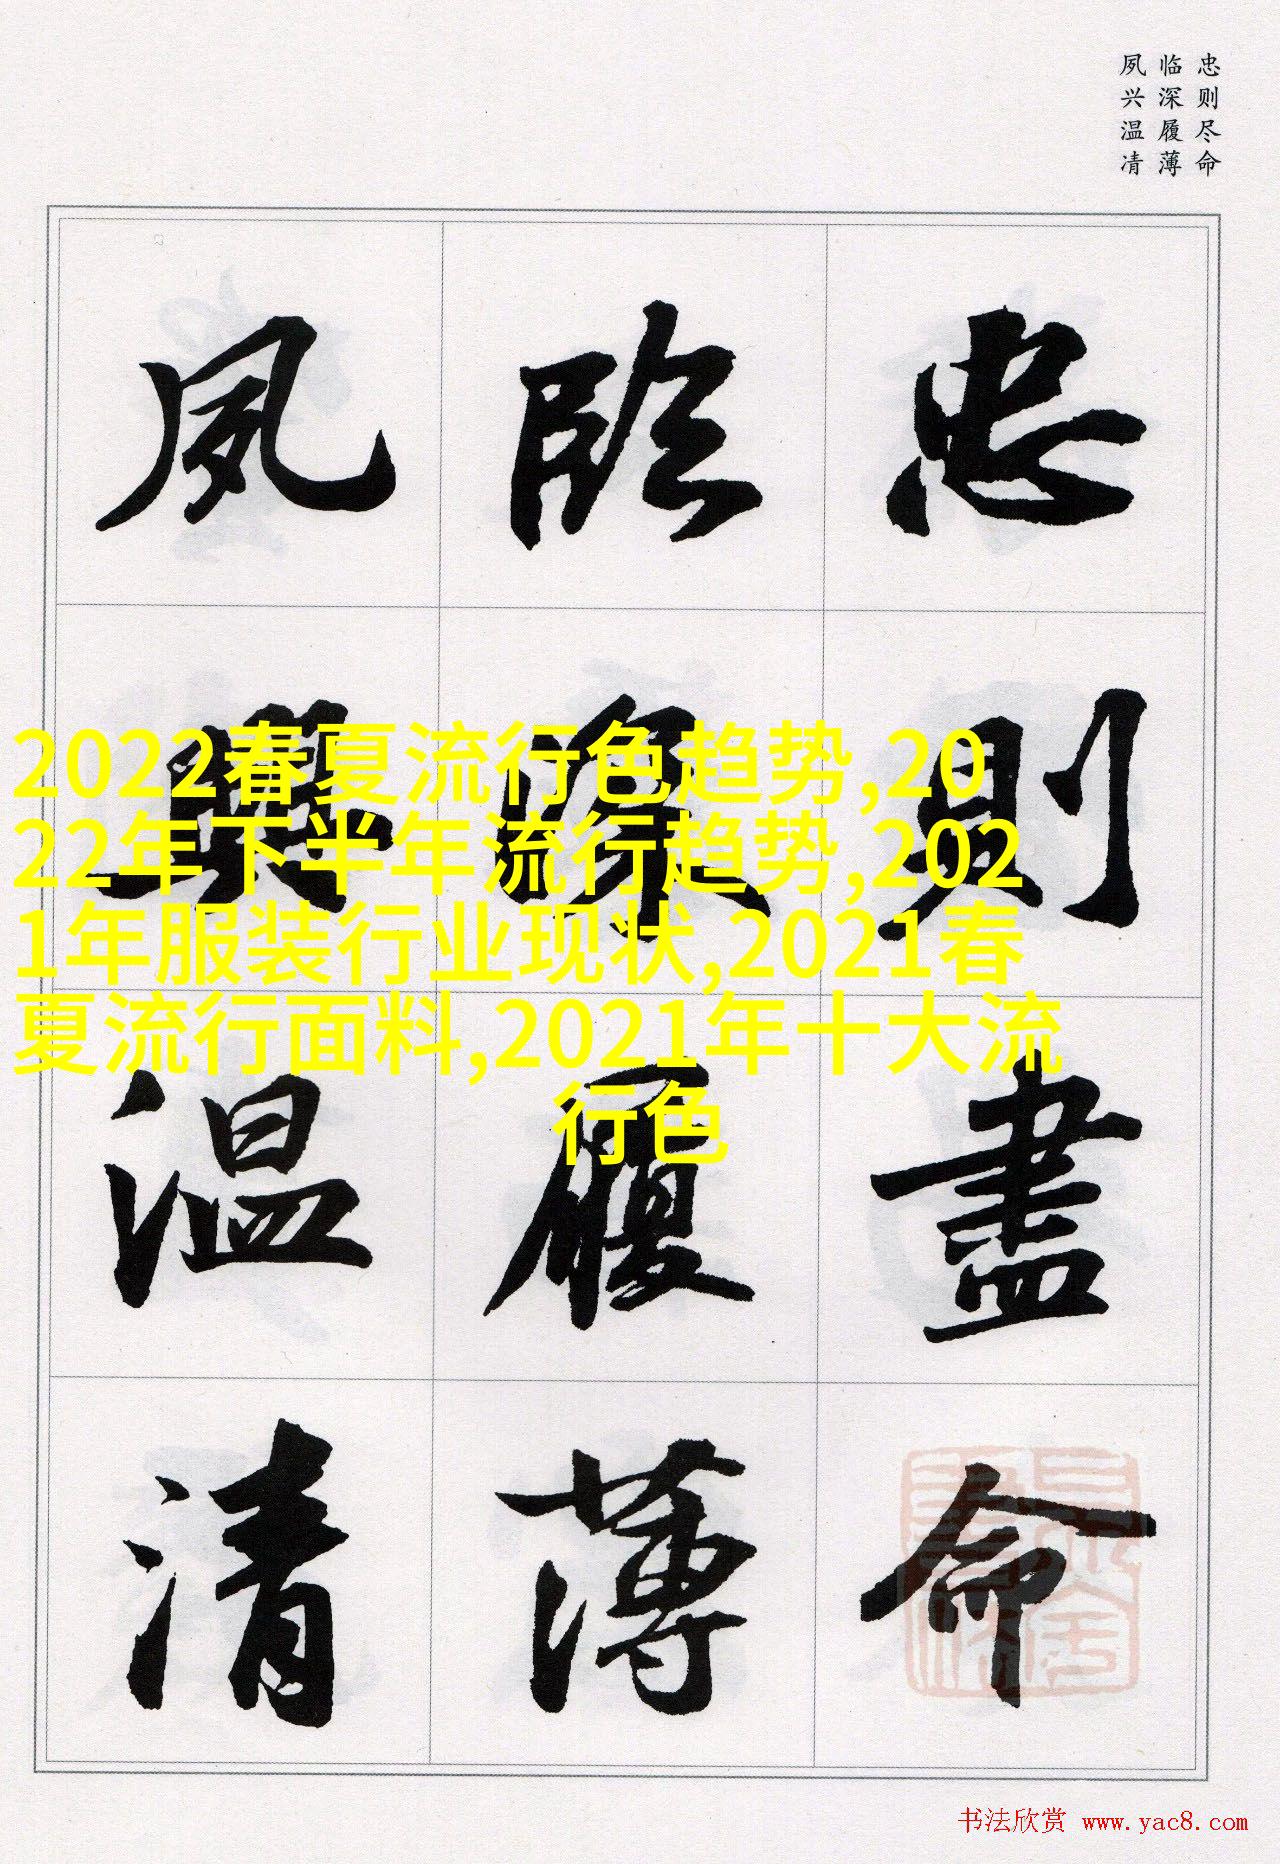 忠则尽命
临深履薄
夙兴温凊
忠則盡命
臨深履薄
夙興温清
2022春夏流行色趋势,20
22年下半年流行趋势,202
1年服装行业现状,2021春
夏流行面料,2021年十大流
行色
书法欣赏 www.yac8.com